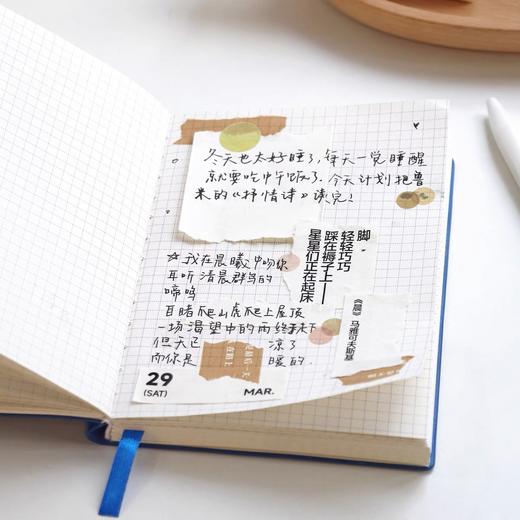 冬天也太好睡了,每天一觉睡醒
就要吃中午饭了.今天计划把鲁
米的《抒情诗》读完!
脚,
轻轻巧巧
踩在褥子上——
星星们正在起床
《晨》马雅可夫斯基
☆我在晨曦中吻你
耳听清晨群鸟的
啼鸣
目睹爬山虎爬上屋顶
一场渴望中的雨终未下
但天已 凉了
而你是 暖的.
29
(SAT)
MAR.